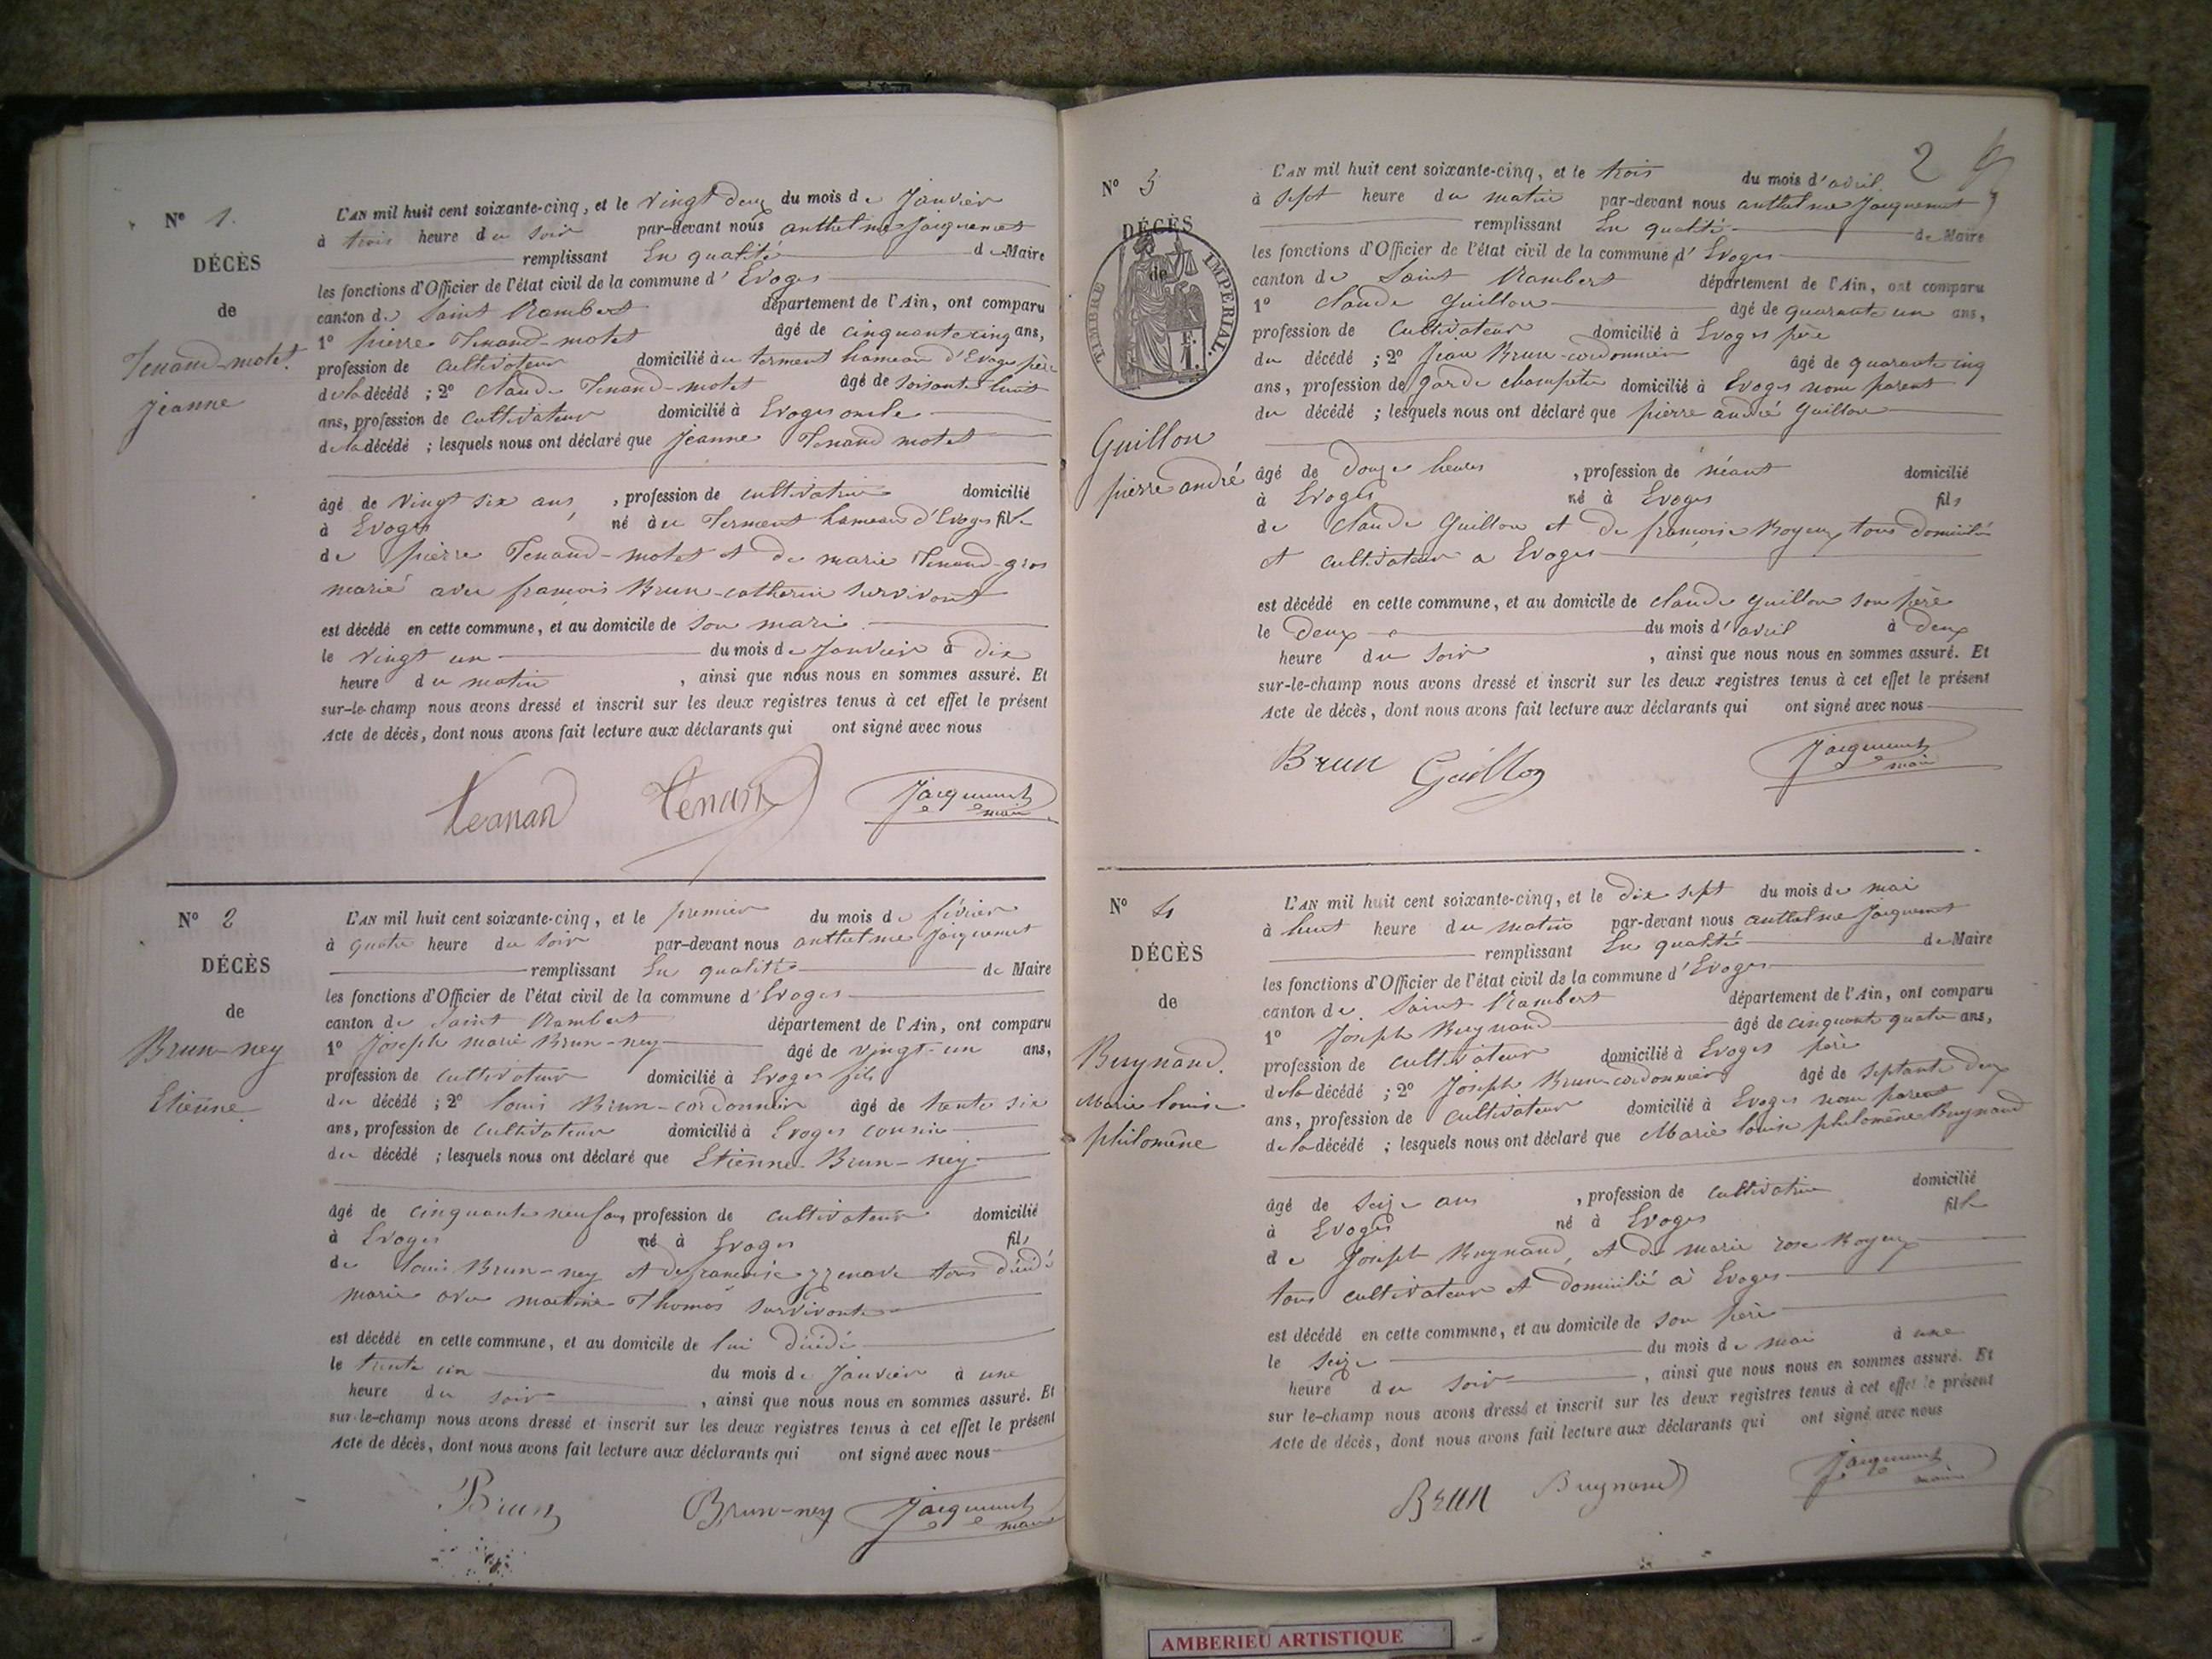 N° 1.
DÉCÈS
de
Tenand-motet.
jeanne
L'AN mil huit cent soixante-cinq, et le vingt deux du mois de Janvier
à trois heure du soir par-devant nous anthelme Jacquemet
remplissant En qualité de Maire
les fonctions d'Officier de l'état civil de la commune d' Evoges
canton de Saint Rambert département de l'Ain, ont comparu
1° pierre Tenand-motet âgé de cinquante cinq ans,
profession de cultivateur domicilié au terment hameau d'Evoges père
de la décédé ; 2° claude Tenand-motet âgé de soisante huit
ans, profession de cultivateur domicilié à Evoges oncle
de la décédé ; lesquels nous ont déclaré que Jeanne Tenand motet
âgé de vingt six ans, profession de cultivatrice domicilié
à Evoges né au Terment hameau d'Evoges fille
de pierre Tenand-motet et de marie Tenand-gros
marié avec françois Brun-catherin survivant
est décédé en cette commune, et au domicile de son mari
le vingt un du mois de Janvier à dix
heure du matin , ainsi que nous nous en sommes assuré. Et
sur-le-champ nous avons dressé et inscrit sur les deux registres tenus à cet effet le présent
Acte de décès, dont nous avons fait lecture aux déclarants qui ont signé avec nous
Tenand Jacquemet
maire
N° 2
DÉCÈS
de
Brun-ney
Etienne
L'AN mil huit cent soixante-cinq, et le premier du mois de février
à quatre heure du soir par-devant nous anthelme Jacquemet
remplissant En qualité de Maire
les fonctions d'Officier de l'état civil de la commune d'Evoges
canton de Saint Rambert département de l'Ain, ont comparu
1° Joseph marie Brun-ney âgé de vingt-un ans,
profession de cultivateur domicilié à Evoges fils
du décédé ; 2° louis Brun-cordonnier âgé de trente six
ans, profession de cultivateur domicilié à Evoges cousin
du décédé ; lesquels nous ont déclaré que Etienne Brun-ney
âgé de cinquante neuf ans, profession de cultivateur domicilié
à Evoges né à Evoges fils
de louis Brun-ney et de francoise grenard tous décédé
marié avec martine Thomas survivante
est décédé en cette commune, et au domicile de lui décédé
le trente un du mois de Janvier à une
heure du soir , ainsi que nous nous en sommes assuré. Et
sur-le-champ nous avons dressé et inscrit sur les deux registres tenus à cet effet le présent
Acte de décès, dont nous avons fait lecture aux déclarants qui ont signé avec nous
Brun Brun-ney Jacquemet
maire
2
N° 3
DÉCÈS
de
TIMBRE IMPERIAL.
F.
1.
Guillon
pierre andré
L'AN mil huit cent soixante-cinq, et le trois du mois d'avril
à sept heure du matin par-devant nous anthelme Jacquemet
remplissant En qualité de Maire
les fonctions d'Officier de l'état civil de la commune d' Evoges
canton de Saint Rambert département de l'Ain, ont comparu
1° claude Guillon âgé de quarante un ans,
profession de cultivateur domicilié à Evoges père
du décédé ; 2° Jean Brun-cordonnier âgé de quarante cinq
ans, profession de garde champêtre domicilié à Evoges non parent
du décédé ; lesquels nous ont déclaré que pierre andré Guillon
âgé de douze heures , profession de néant domicilié
à Evoges né à Evoges fils
de claude Guillon et de françoise Royeux tous domicilié
et cultivateur a Evoges
est décédé en cette commune, et au domicile de claude guillon son père
le deux du mois d'avril à deux
heure du soir , ainsi que nous nous en sommes assuré. Et
sur-le-champ nous avons dressé et inscrit sur les deux registres tenus à cet effet le présent
Acte de décès, dont nous avons fait lecture aux déclarants qui ont signé avec nous
Brun Guillon Jacquemet
maire
N° 4
DÉCÈS
de
Buynand.
Marie louise
philomène
L'AN mil huit cent soixante-cinq, et le dix sept du mois de mai
à huit heure du matin par-devant nous anthelme Jacquemet
remplissant En qualité de Maire
les fonctions d'Officier de l'état civil de la commune d'Evoges
canton de Saint Rambert département de l'Ain, ont comparu
1° Joseph Buynand âgé de cinquante quatre ans,
profession de cultivateur domicilié à Evoges père
de la décédé ; 2° Joseph Brun-cordonnier âgé de septante deux
ans, profession de cultivateur domicilié à Evoges non parent
de la décédé ; lesquels nous ont déclaré que Marie louise philomène Buynand
âgé de seize ans , profession de cultivatrice domicilié
à Evoges né à Evoges fille
de Joseph Buynand, et de marie rose Royeux
tous cultivateur et domicilié à Evoges
est décédé en cette commune, et au domicile de son père
le seize du mois de mai à une
heure du soir , ainsi que nous nous en sommes assuré. Et
sur le-champ nous avons dressé et inscrit sur les deux registres tenus à cet effet le présent
Acte de décès, dont nous avons fait lecture aux déclarants qui ont signé avec nous
Brun Buynand Jacquemet
maire
AMBERIEU ARTISTIQUE